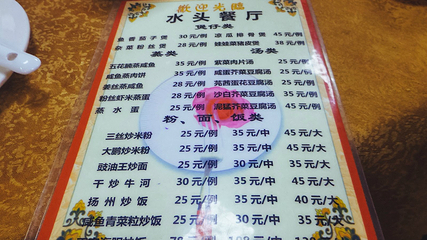 歡迎光臨
水头餐厅
煲仔类
鱼香茄子煲 30 元/例 凉瓜排骨煲 45 元/例
杂菜粉丝煲 28 元/例 娃娃菜猪皮煲 38 元/例
蒸类 汤类
五花腩蒸咸鱼 35 元/例 紫菜肉片汤 25元/例
咸鱼蒸肉饼 35 元/例 咸蛋芥菜豆腐汤 25元/例
姜丝蒸咸鱼 28 元/例 芫茜蛋花豆腐汤 25元/例
粉丝虾米蒸蛋 25 元/例 沙白芥菜豆腐汤 35元/例
蒸水蛋 25 元/例 芥菜豆腐汤 45元/例
粉、面、饭类
三丝炒米粉 25 元/例 35 元/中 45 元/大
大鹏炒米粉 25 元/例 35 元/中 45 元/大
豉油王炒面 25 元/例 35 元/中 45 元/大
干炒牛河 30 元/例 40 元/中 50 元/大
扬州炒饭 25 元/例 35 元/中 40 元/大
咸鱼青菜粒炒饭 25 元/例 30 元/中 35 元/大